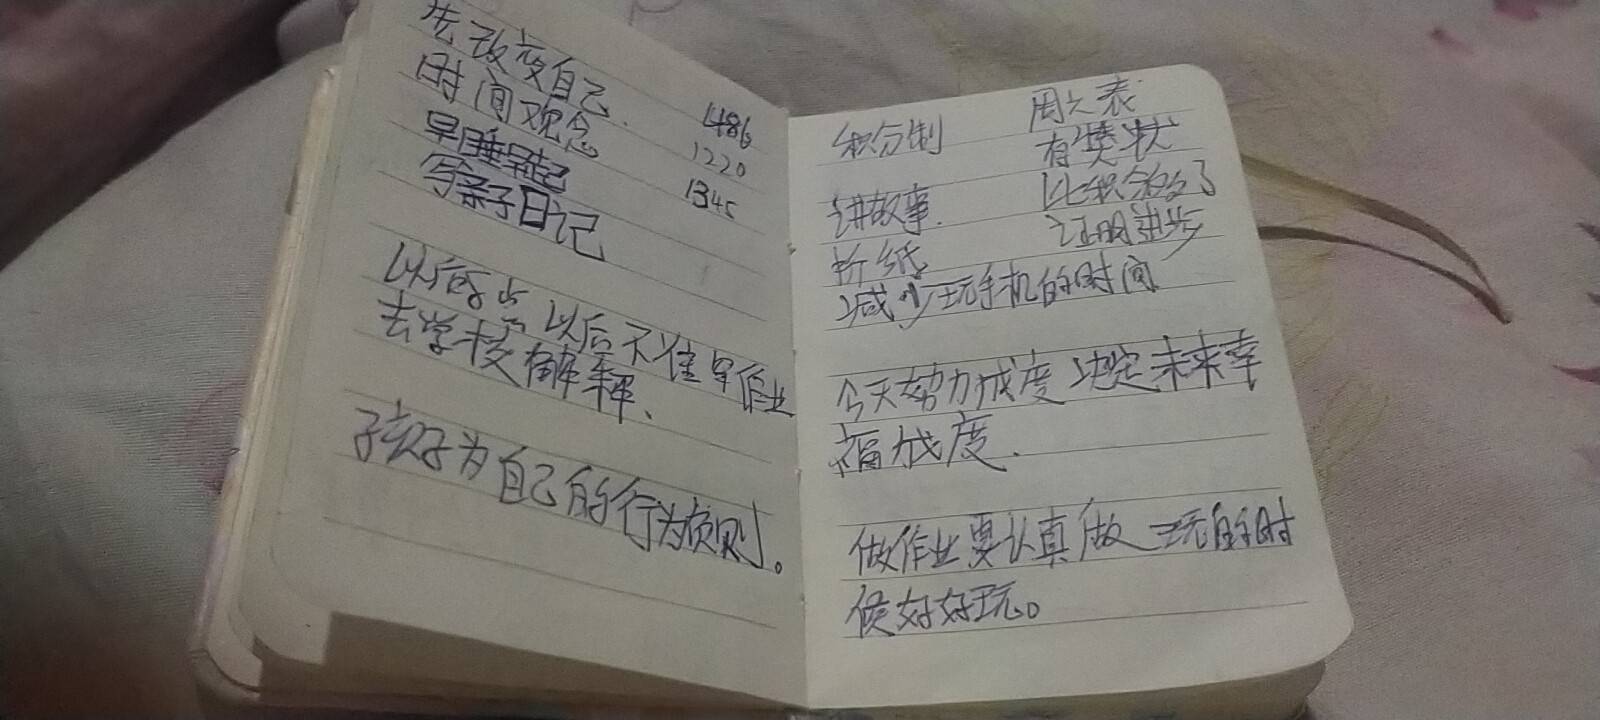 先改变自己.
时间观念
早睡早起
写亲子日记
1486
1220
1345
以后 点以后不准写作业
去学校解释、
孩子为自己的行为负责。
积分制
讲故事.
折纸
减少玩手机的时间
周之表
有奖状
比积分
证明进步
今天努力成度决定未来幸
福成度.
做作业要认真做 玩的时
候好好玩。